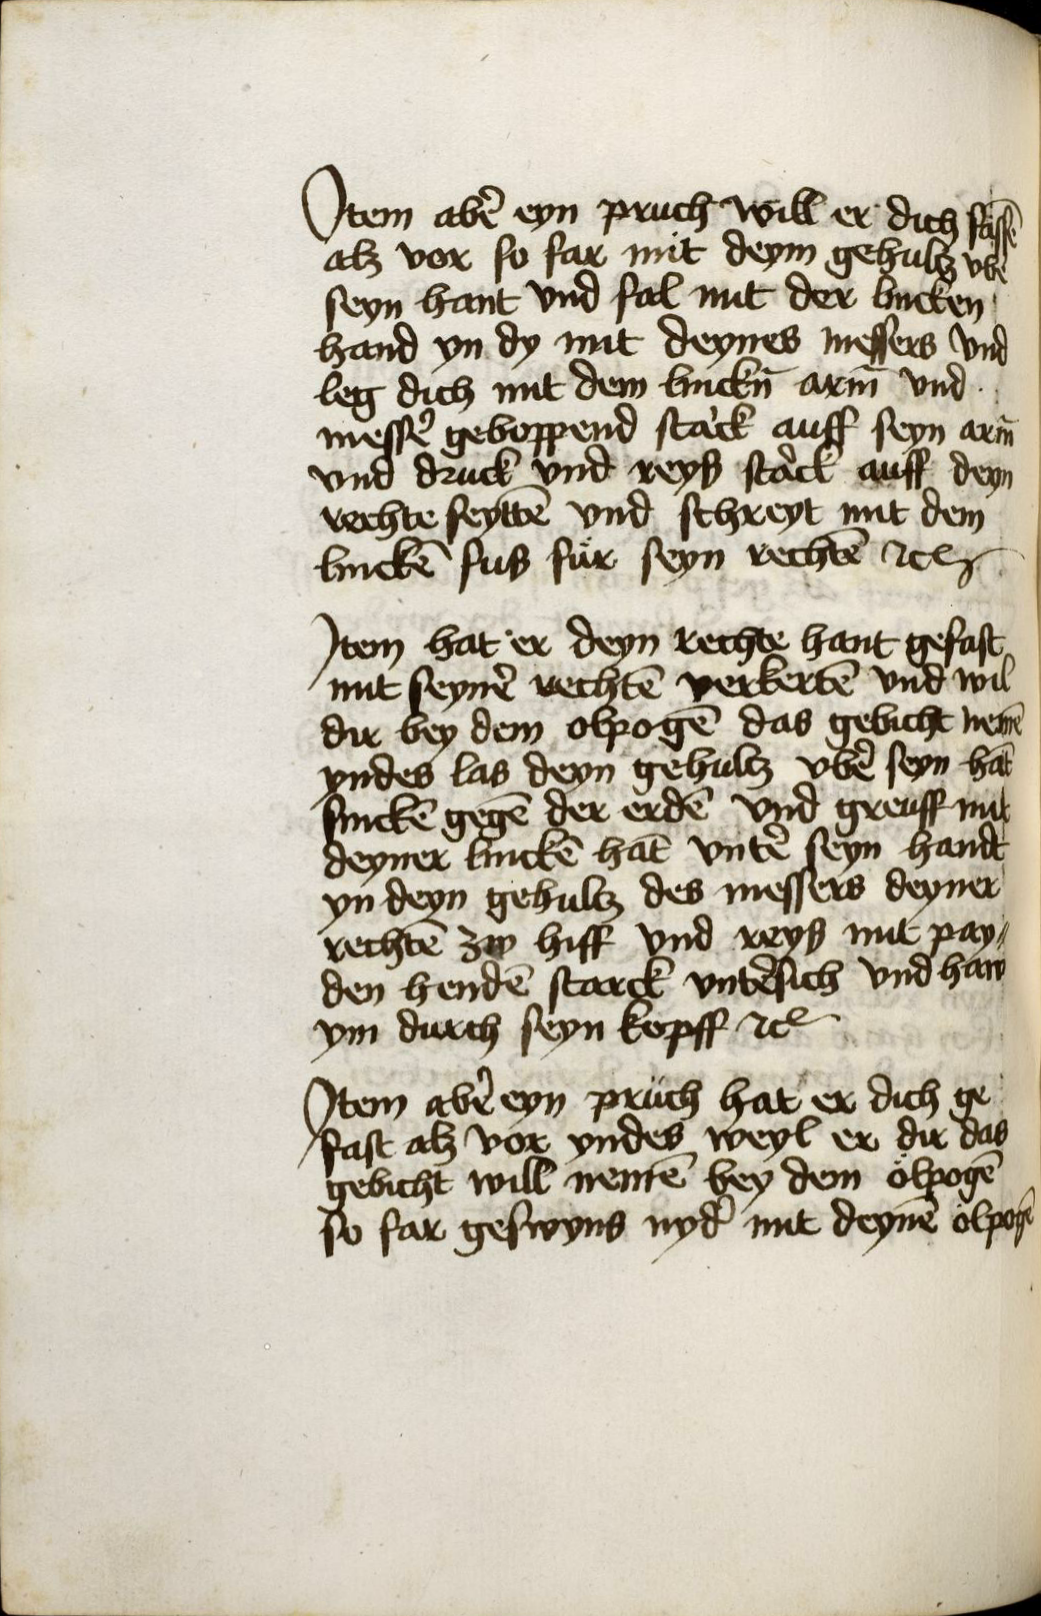 Item abẽ eyn pruch will er dich fassẽ
alz vor so far mit deym gehultz vbẽ
seyn hant vnd fal mit der lincken
hand yn dy mit deynes messers vnd
leg dich mit dem linckñ arm̃ vnd
messẽ geboppend starck auff seyn arm̃
vnd druck vnd reyß starck auff deyn
rechte seyttẽ vnd schreyt mit dem
linckẽ fuß für seyn rechtẽ ⁊c̃
Item hat er deyn rechte hant gefast
mit seynẽ rechtẽ verkertẽ vnd wil
dir bey dem olpogẽ das gebicht nemẽ
yndes las deyn gehultz vbẽ seyn hãt
sinckẽ gegẽ der erdẽ vnd greuff mit
deyner linckẽ hãt vntẽ seyn handt
yn deyn gehultz des messers deyner
rechtẽ zw hiff vnd reyß mit pay⸗
den hendẽ starck vntẽsich vnd haw
ym durch seyn kopff ⁊c̃
Item abẽ eyn prüch hat er dich ge
fast alz vor yndes weyl er dir das
gebicht will nemẽ bey dem ölpogẽ
so far geswyns nyd̃ mit deynẽ ölpogẽ